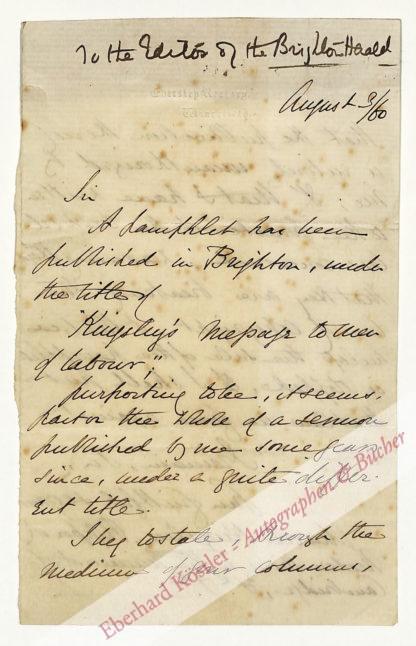 To the Editor of the Brighton Herald
Eversley Rectory,
August 3/60
Sir
A pamphlet has been
published in Brighton, under
the title of
"Kingsley's Message to men
of labour",
purporting to be, it seems,
part or the whole of a sermon
published by me some years
since, under a quite differ-
ent title.
I beg to state, through the
medium of your columns,
Eberhard Köstler - Autographen & Bücher